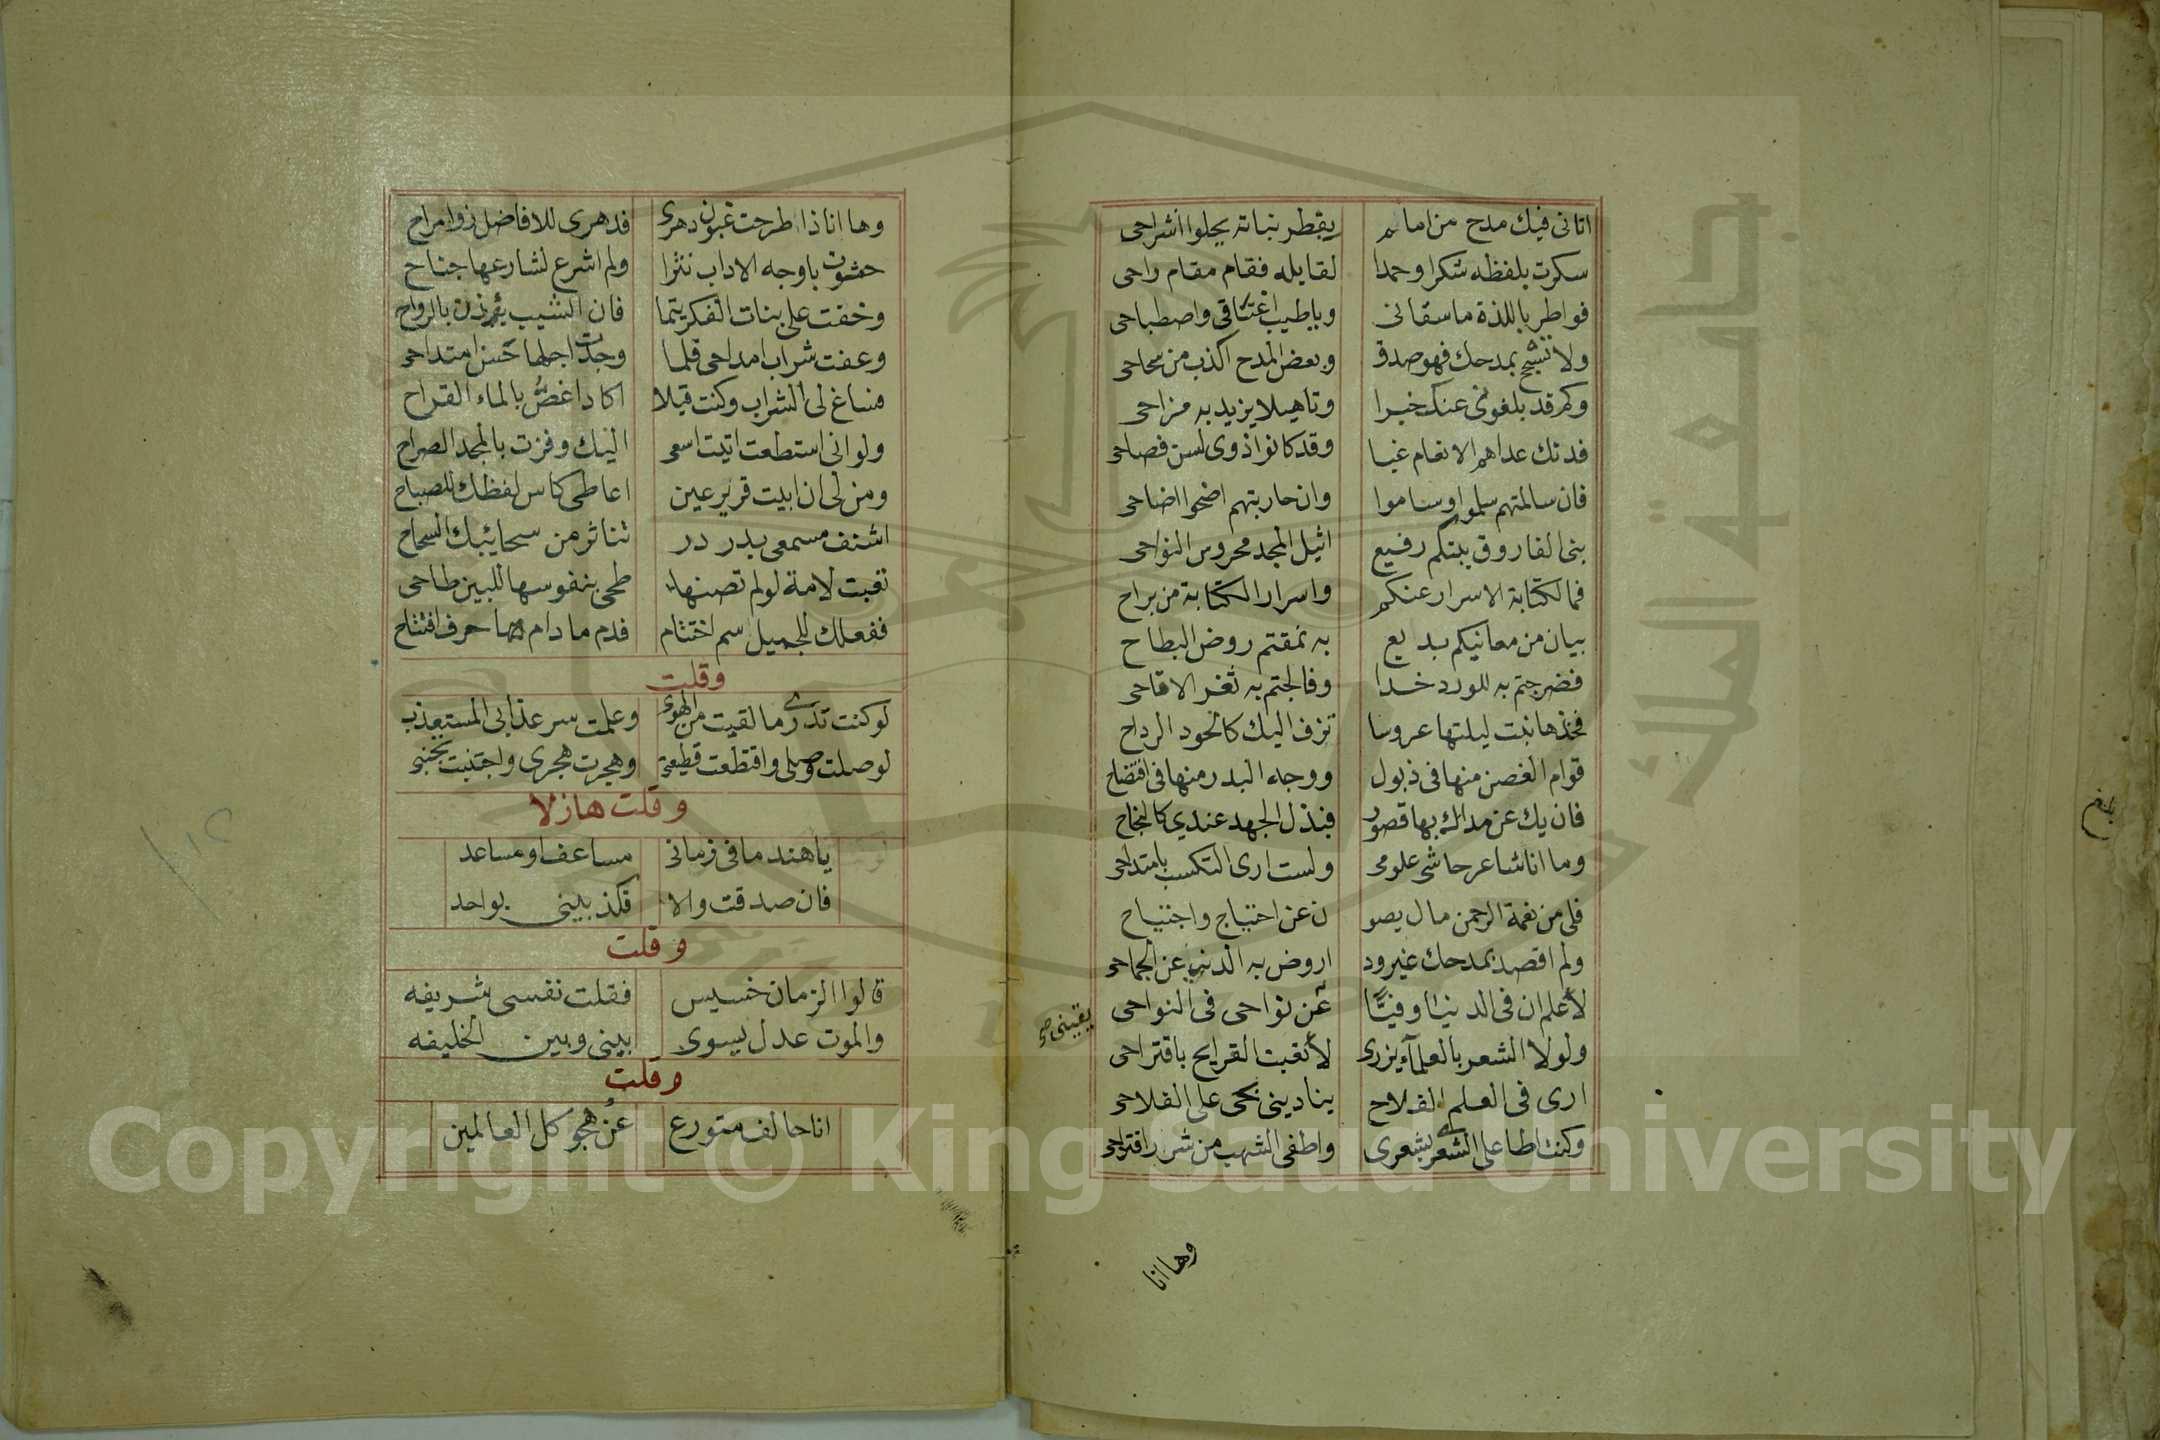 اتانى فيك مدح من امام يقطر نباته يجلوا انشراحى
سكرت بلفظه شكرا وحمدا لقايله فقام مقام راحى
فواطربا للذة ما سقانى وياطيب اغتباقى واصطباحى
ولا تشبح بمدحك فهو صدق وبعض المدح اكذب من سجاحى
وكم قد بلغونى عنك خبرا وتاهيلا يزيد به مزاحى
فدتك عداهم الانعام غيا وقد كانوا ذوى لسن فصاحى
فان سالمتهم سلموا وساموا وان حاربتهم اضحوا اضاحى
بنى الفاروق بيتكم رفيع اثيل المجد محروس النواحى
فما لكتابة الاسرار عنكم واسرار الكتابة من براح
بيان من معانيكم بديع به نمقتم روض البطاح
فضرجتم به للورد خدا وفالجتم به ثغر الاقاحى
فخذها بنت ليلتها عروسا تزف اليك كالخود الرداح
قوام الغصن منها فى ذبول ووجه البدر منها فى افتضاح
فان يك عن مداك بها قصور فبذل الجهد عندي كالنجاح
وما انا شاعر حاشى علومى ولست ارى التكسب بامتداحى
فلى من نعمة الرحمن مال يصو ن عن احتياج واجتياح
ولم اقصد بمدحك غير ود اروض به الدنى عن الجماحى
لأعلم ان فى الدنيا وفيًّا عن نواحى فى النواحى
يقينى صح
ولولا الشعر بالعلماء يزرى لأتعبت القرايح باقتراحى
ارى فى العلم الفلاح ينادينى بحى على الفلاحى
وكنت اطا على الشعر بشعرى واطفى الشهب من شرر اقتداحى
وها انا
وها انا ذا اطرحت غبون دهرى فدهرى للافاضل ذو امراح
حشوت باوجه الاداب نثرا ولم اشرع لشارعها جناح
وخفت على بنات الفكر يتما فان الشيب يؤذن بالرواح
وعفت شراب امداحى فلما وجدت اجلها حسن امتداحى
فساغ لى الشراب وكنت قبلا اكاد اغصُّ بالماء القراح
ولو انى استطعت اتيت اسعى اليك وفزت بالمجد الصراح
ومن لى ان ابيت قرير عين اعاطى كاس لفظك للصباح
اشنف مسمعى بدر در تناثر من سحايبك السماح
تعبت لامة لو لم تصنها طحى بنفوسها للبين طاحى
ففعلك للجميل سم اختتام فدم ما دام حرف افتتاح
وقلت
لو كنت تدرى ما لقيت من الهوى وعلمت سر عذابى المستعذب
لوصلت وصلى واقتطعت قطيعة وهجرت هجرى واجتنبت تجنبى
وقلت هازلا
يا هند ما فى زمانى مساعف ومساعد
فان صدقت والا فكذبينى بواحد
وقلت
قالوا الزمان خسيس فقلت نفسى شريفه
والموت عدل يسوى بينى وبين الخليفه
وقلت
انا حالف متورع عن هجو كل العالمين
Copyright © King Saud University